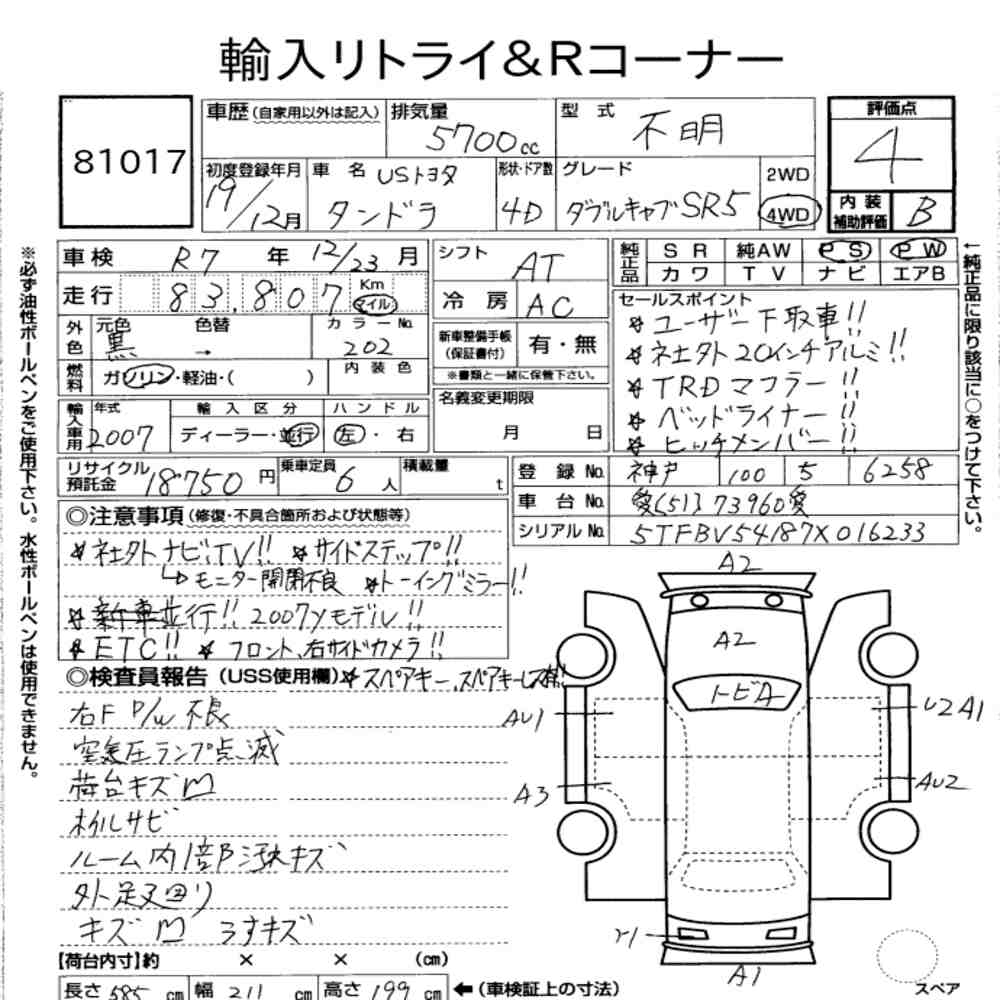 輸入リトライ&Rコーナー
81017
車歴(自家用以外は記入) 排気量 5700cc 型式 不明 評価点 4
初度登録年月 19/12月 車名 USトヨタ タンドラ 形状・ドア数 4D グレード ダブルキャブSR5 2WD 4WD
内装補助評価 B
車検 R7年 12/23月 シフト AT 純正品 SR 純AW PS PW
カワ TV ナビ エアB
走行 83,807 Km マイル 冷房 AC
外色 元色 黒 色替 → カラーNo. 202 内装色
燃料 ガソリン・軽油・( )
新車整備手帳(保証書付) 有・無
※書類と一緒に保管下さい。
輸入車用 年式 2007 輸入区分 ディーラー・並行 ハンドル 左・右
名義変更期限 月 日
セールスポイント
★ユーザー下取車!!
★社外20インチアルミ!!
★TRDマフラー!!
★ベッドライナー!!
★ヒッチメンバー!!
リサイクル預託金 18750円 乗車定員 6人 積載量 t
登録No. 神戸 100 5 6258
車台No. 愛(51)73960愛
シリアルNo. 5TFBV54187X016233
※必ず油性ボールペンをご使用下さい。水性ボールペンは使用できません。
←純正品に限り該当に○をつけて下さい。
◎注意事項(修復・不具合箇所および状態等)
★社外ナビ!TV!! ★サイドステップ!!
↳モニター開閉不良 ★トーイングミラー!!
★新車並行!! 2007yモデル!!
★ETC!! ★フロント、右サイドカメラ!!
◎検査員報告(USS使用欄)★スペアキー、スペアキーレス有!!
右F P/W 不良
空気圧ランプ点滅
荷台キズ凹
ホイルサビ
ルーム内1部汚れキズ
外足又廻り
キズ凹 コすキズ
【荷台内寸】約 × × (cm)
長さ 585 cm 幅 211 cm 高さ 199 cm ←(車検証上の寸法)
A2
A2
トビA
AU1
U2 A1
A3
AU2
Y1
A1
スペア